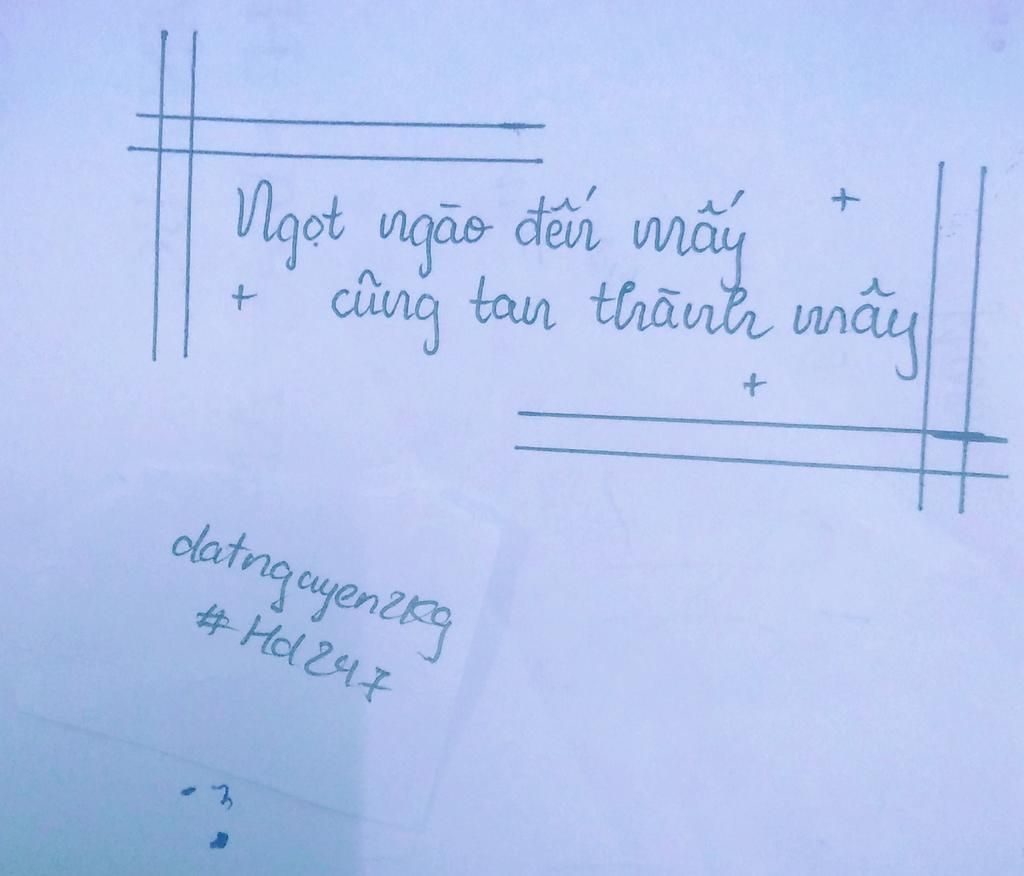 Ngọt ngào đến mấy
cũng tan thành mây
datnguyen2kg
#Hd247